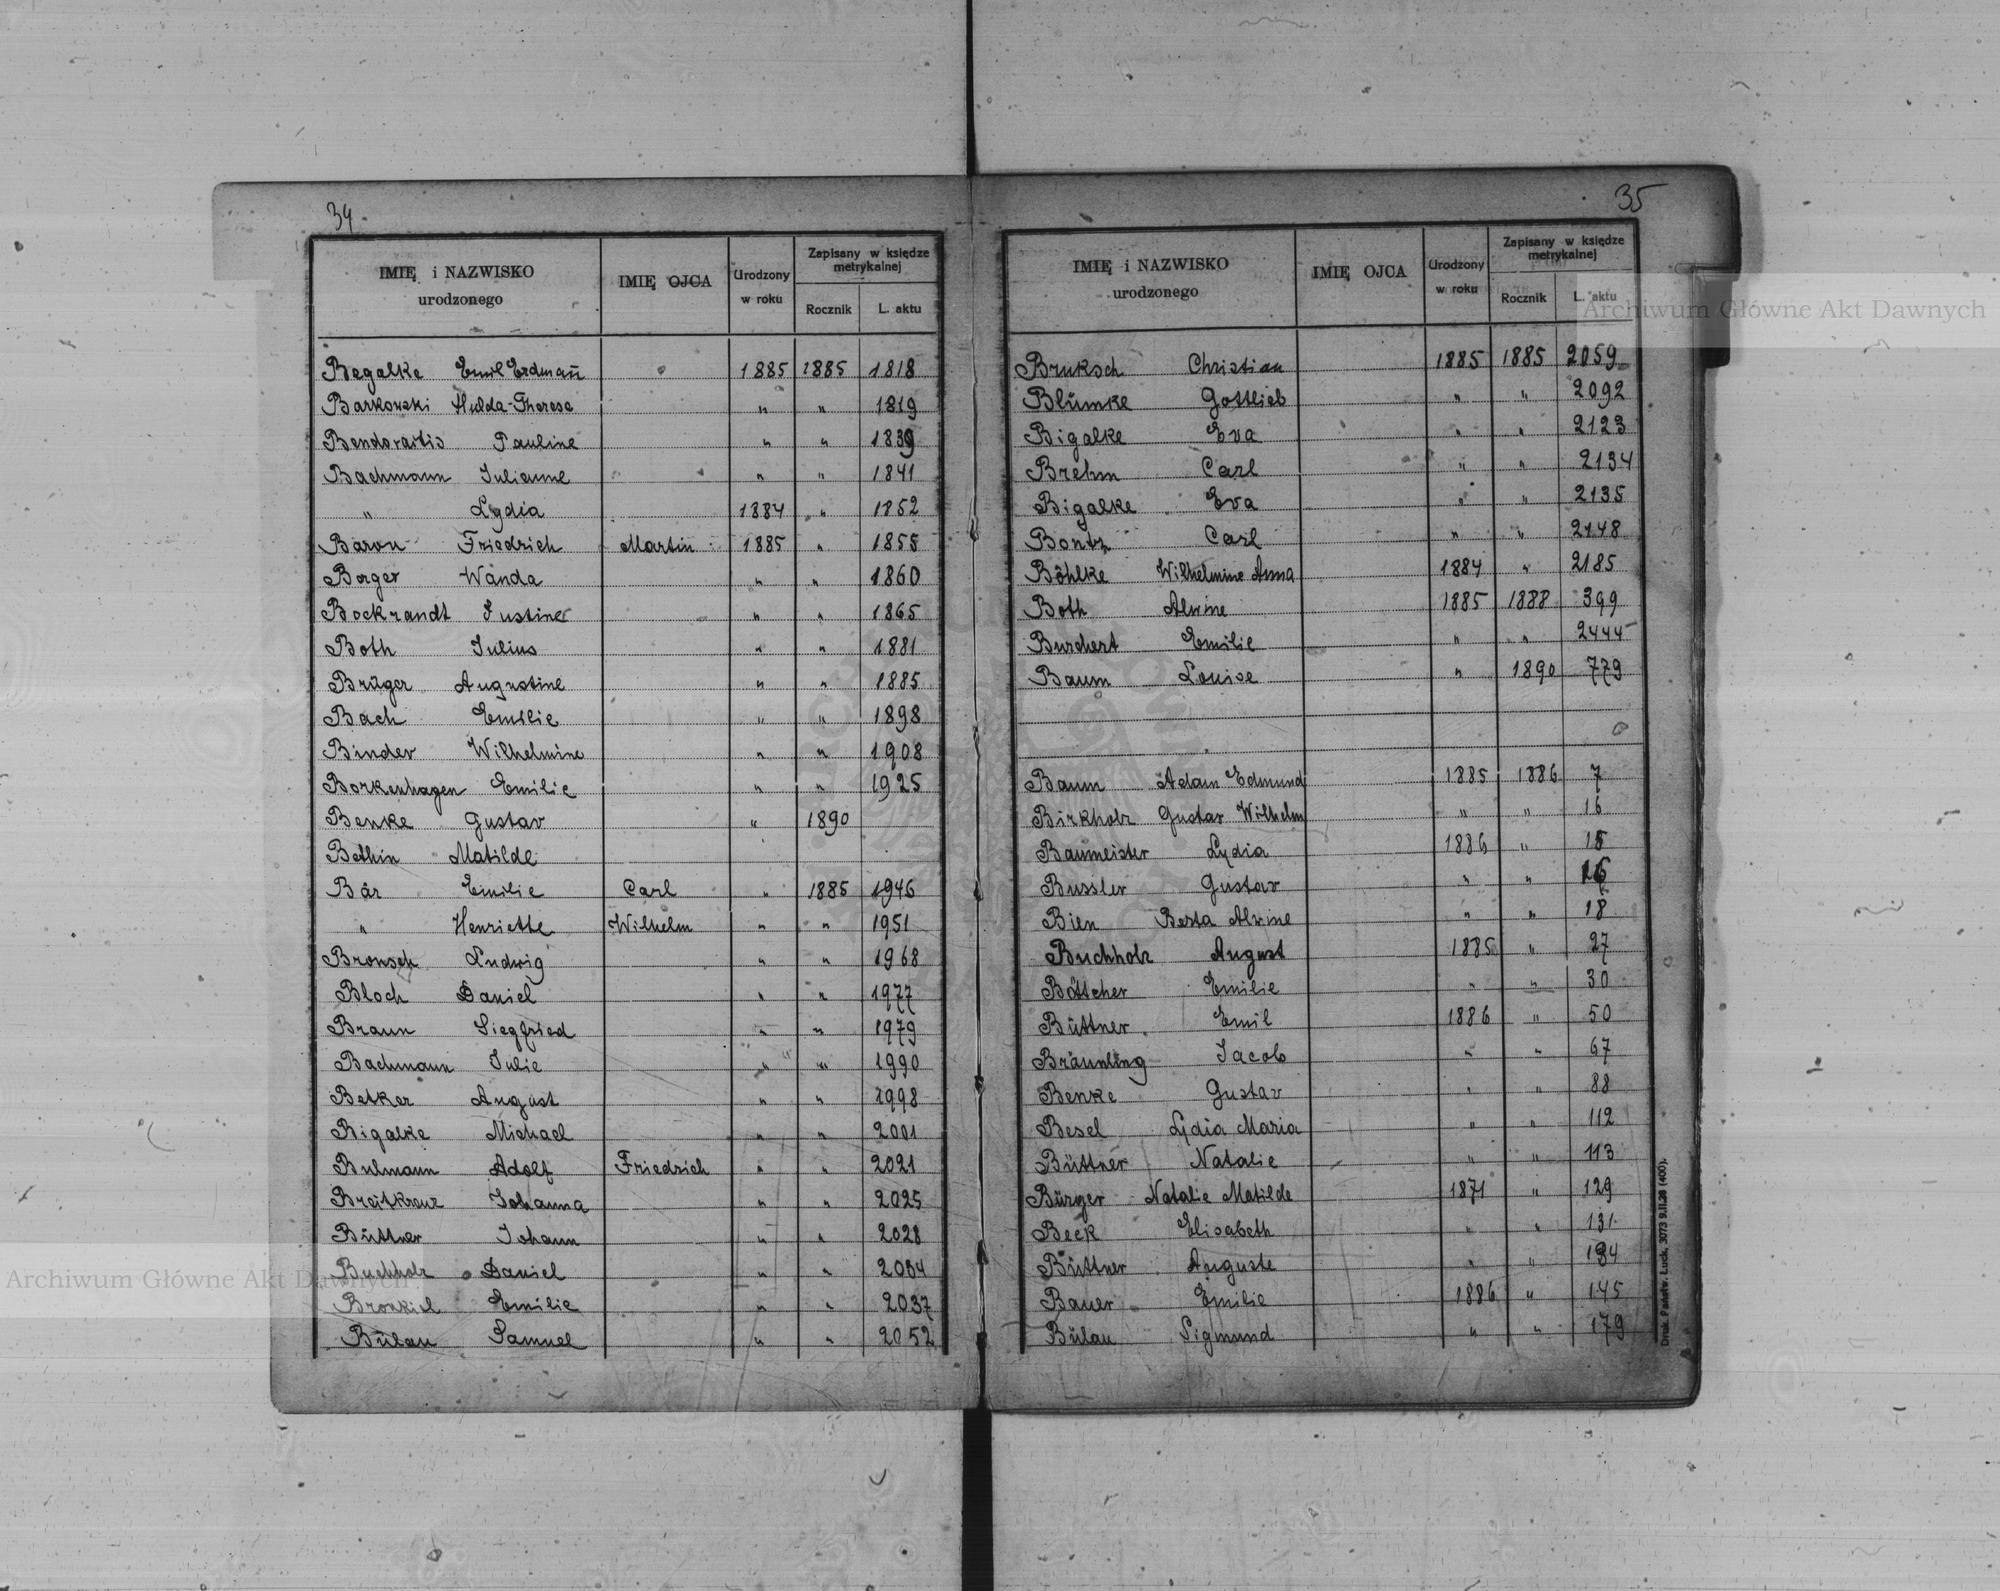 34.
IMIĘ i NAZWISKO urodzonego IMIĘ OJCA Urodzony w roku Zapisany w księdze metrykalnej Rocznik L. aktu
Begalke Emil Erdmañ 1885 1885 1818
Barkowski Hulda-Therese " " 1819
Bendoraitis Pauline " " 1839
Bachmann Julianne " " 1841
" Lydia 1884 " 1852
Baron Friedrich Martin 1885 " 1855
Berger Wanda " " 1860
Bockrandt Justine " " 1865
Both Julius " " 1881
Brüger Augustine " " 1885
Bach Emilie " " 1898
Binder Wilhelmine " " 1908
Borkenhagen Emilie " " 1925
Benke Gustav " 1890
Bethin Matilde
Bär Emilie Carl " 1885 1946
" Henriette Wilhelm " " 1951
Bronsch Ludwig " " 1968
Bloch Daniel " " 1977
Braun Siegfried " " 1979
Bachmann Julie " " 1990
Betker August " " 1998
Bigalke Michael " " 2001
Bulmann Adolf Friedrich " " 2021
Breitkreuz Johanna " " 2025
Büttner Johann " " 2028
Buchholz Daniel " " 2034
Bronkiel Emilie " " 2037
Bülau Samuel " " 2052
35
IMIĘ i NAZWISKO urodzonego IMIĘ OJCA Urodzony w roku Zapisany w księdze metrykalnej Rocznik L. aktu
Bruksch Christian 1885 1885 2059
Blümke Gottlieb " " 2092
Bigalke Eva " " 2123
Brehm Carl " " 2134
Bigalke Eva " " 2135
Bontz Carl " " 2148
Böhlke Wilhelmine Anna 1884 " 2185
Both Alwine 1885 1888 399
Burchert Emilie " " 2444
Baum Louise " 1890 779
Baum Adam Edmund 1885 1886 7
Birkholz Gustav Wilhelm " " 16
Baumeister Lydia 1886 " 15
Bussler Gustav " " 16
Bien Berta Alwine " " 18
Buchholz August 1885 " 27
Böttcher Emilie " " 30
Büttner Emil 1886 " 50
Bräunling Jacob " " 67
Benke Gustav " " 88
Besel Lydia Maria " " 112
Büttner Natalie " " 113
Bürger Natalie Matilde 1871 " 129
Beck Elisabeth " " 131
Büttner Auguste " " 134
Bauer Emilie 1886 " 145
Bülau Sigmund " " 179
Druk. Państw. Łuck, 3073 9.II.28 (400).
Archiwum Główne Akt Dawnych
Archiwum Główne Akt Dawnych